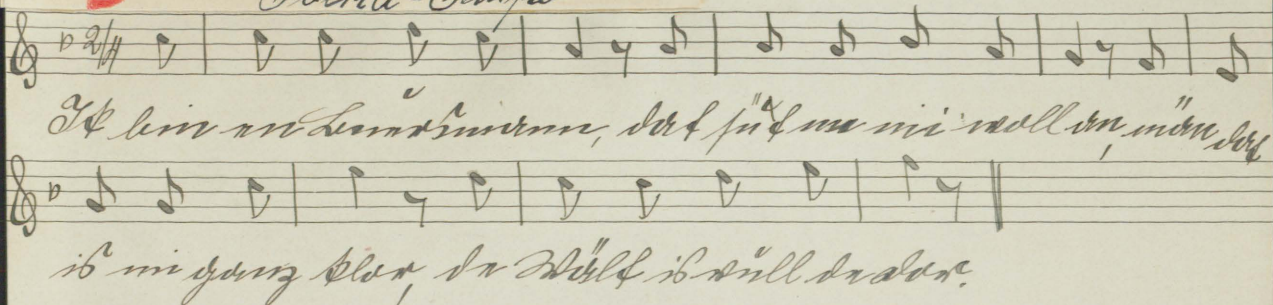 2/4
Ik bin en Buersmann, dat süt me mi woll an, män dat
is mi ganz klor, de Wält is vull de Dor.